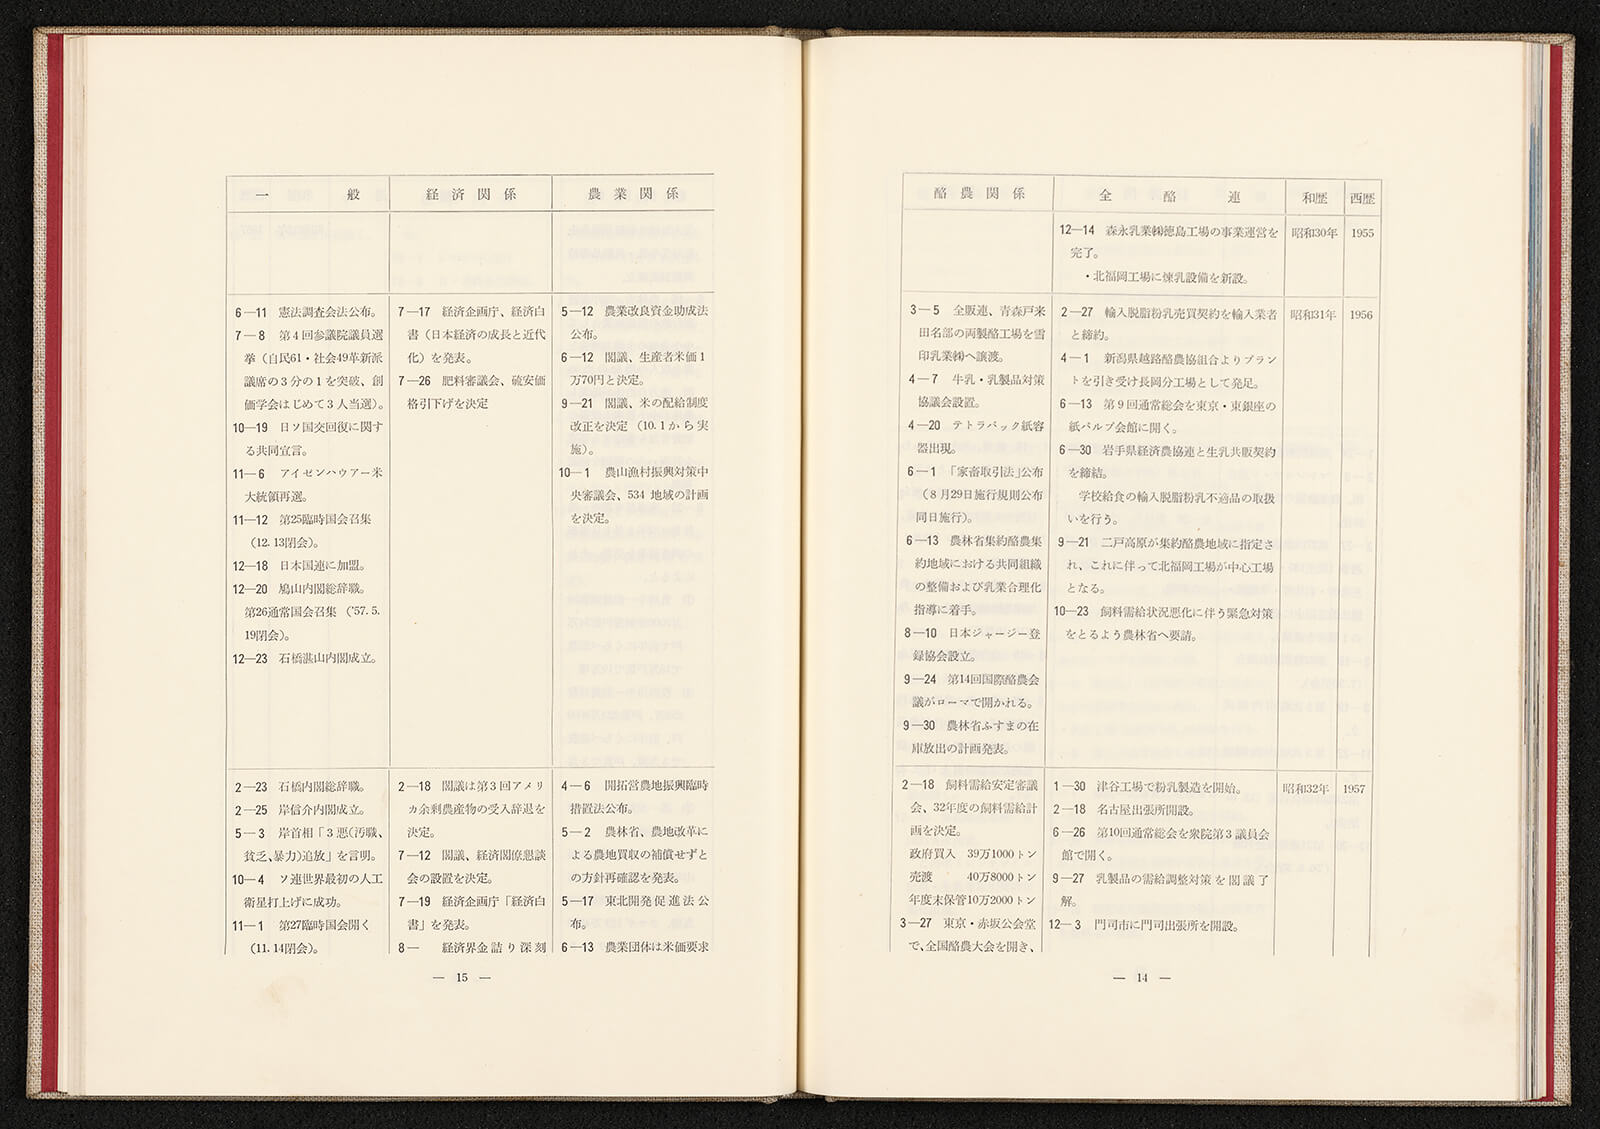 酪農関係
全酪連
和歴
西歴
12—14 森永乳業㈱徳島工場の事業運営を
完了。
・北福岡工場に煉乳設備を新設。
昭和30年
1955
3—5 全販連、青森戸来
田名部の両製酪工場を雪
印乳業㈱へ譲渡。
4—7 牛乳・乳製品対策
協議会設置。
4—20 テトラパック紙容
器出現。
6—1 「家畜取引法」公布
(8月29日施行規則公布
同日施行)。
6—13 農林省集約酪農集
約地域における共同組織
の整備および乳業合理化
指導に着手。
8—10 日本ジャージー登
録協会設立。
9—24 第14回国際酪農会
議がローマで開かれる。
9—30 農林省ふすまの在
庫放出の計画発表。
2—27 輸入脱脂粉乳売買契約を輸入業者
と締約。
4—1 新潟県越路酪農協組合よりプラン
トを引き受け長岡分工場として発足。
6—13 第9回通常総会を東京・東銀座の
紙パルプ会館に開く。
6—30 岩手県経済農協連と生乳共販契約
を締結。
学校給食の輸入脱脂粉乳不適品の取扱
いを行う。
9—21 二戸高原が集約酪農地域に指定さ
れ、これに伴って北福岡工場が中心工場
となる。
10—23 飼料需給状況悪化に伴う緊急対策
をとるよう農林省へ要請。
昭和31年
1956
2—18 飼料需給安定審議
会、32年度の飼料需給計
画を決定。
政府買入 39万1000トン
売渡 40万8000トン
年度末保管10万2000トン
3—27 東京・赤坂公会堂
で、全国酪農大会を開き、
1—30 津谷工場で粉乳製造を開始。
2—18 名古屋出張所開設。
6—26 第10回通常総会を衆院第3議員会
館で開く。
9—27 乳製品の需給調整対策を閣議了
解。
12—3 門司市に門司出張所を開設。
昭和32年
1957
— 14 —
一般
経済関係
農業関係
6—11 憲法調査会法公布。
7—8 第4回参議院議員選
挙(自民61・社会49革新派
議席の3分の1を突破、創
価学会はじめて3人当選)。
10—19 日ソ国交回復に関す
る共同宣言。
11—6 アイゼンハウアー米
大統領再選。
11—12 第25臨時国会召集
(12.13閉会)。
12—18 日本国連に加盟。
12—20 鳩山内閣総辞職。
第26通常国会召集 ('57.5.
19閉会)。
12—23 石橋湛山内閣成立。
7—17 経済企画庁、経済白
書(日本経済の成長と近代
化)を発表。
7—26 肥料審議会、硫安価
格引下げを決定
5—12 農業改良資金助成法
公布。
6—12 閣議、生産者米価1
万70円と決定。
9—21 閣議、米の配給制度
改正を決定 (10.1から実
施)。
10—1 農山漁村振興対策中
央審議会、534地域の計画
を決定。
2—23 石橋内閣総辞職。
2—25 岸信介内閣成立。
5—3 岸首相「3悪(汚職、
貧乏、暴力)追放」を言明。
10—4 ソ連世界最初の人工
衛星打上げに成功。
11—1 第27臨時国会開く
(11.14閉会)。
2—18 閣議は第3回アメリ
カ余剰農産物の受入辞退を
決定。
7—12 閣議、経済閣僚懇談
会の設置を決定。
7—19 経済企画庁「経済白
書」を発表。
8— 経済界金詰り深刻
4—6 開拓営農地振興臨時
措置法公布。
5—2 農林省、農地改革に
よる農地買収の補償せずと
の方針再確認を発表。
5—17 東北開発促進法公
布。
6—13 農業団体は米価要求
— 15 —